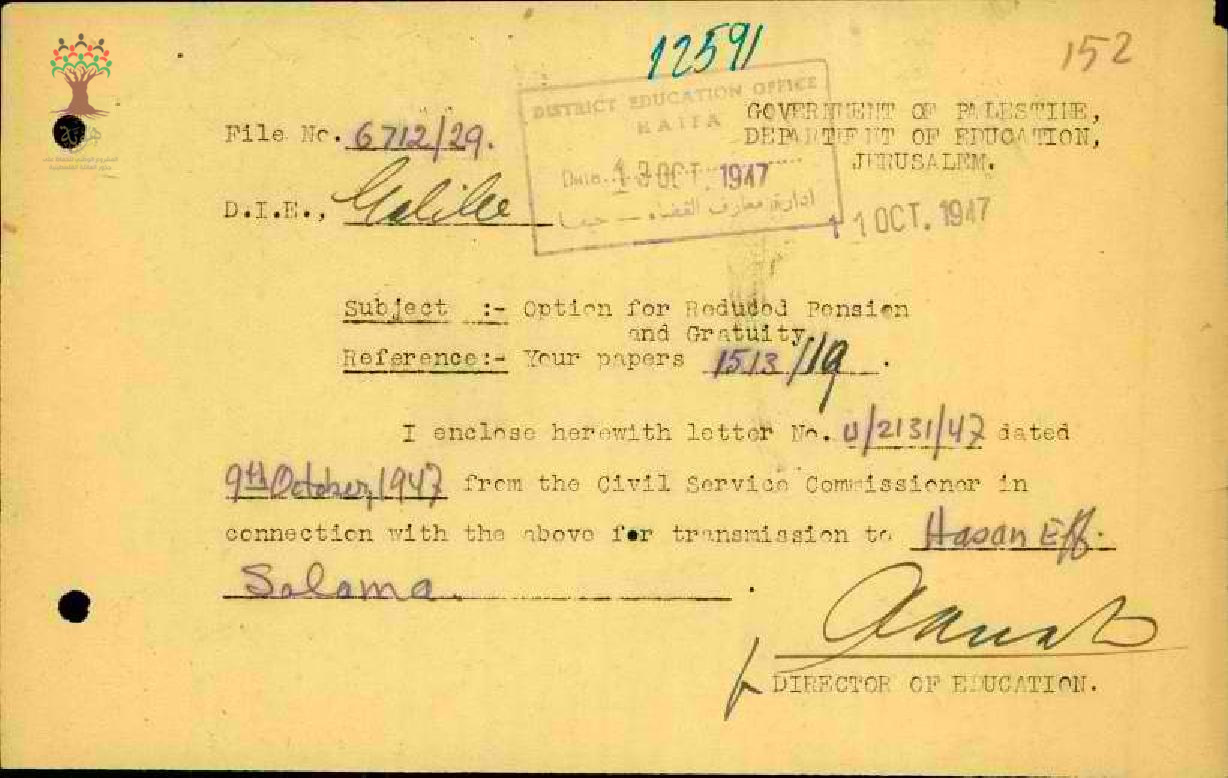 12591
152
DISTRICT EDUCATION OFFICE
HAIFA
Date 13 OCT. 1947
ادارة معارف القضاء — حيفا
GOVERNMENT OF PALESTINE,
DEPARTMENT OF EDUCATION,
JERUSALEM.
11 OCT. 1947
File No. 6712/29.
D.I.E., Galilee
Subject :- Option for Reduced Pension
and Gratuity
Reference:- Your papers 1513/119 .
I enclose herewith letter No. U/2131/47 dated
9th October, 1947 from the Civil Service Commissioner in
connection with the above for transmission to Hasan Eff.
Salama. .
DIRECTOR OF EDUCATION.